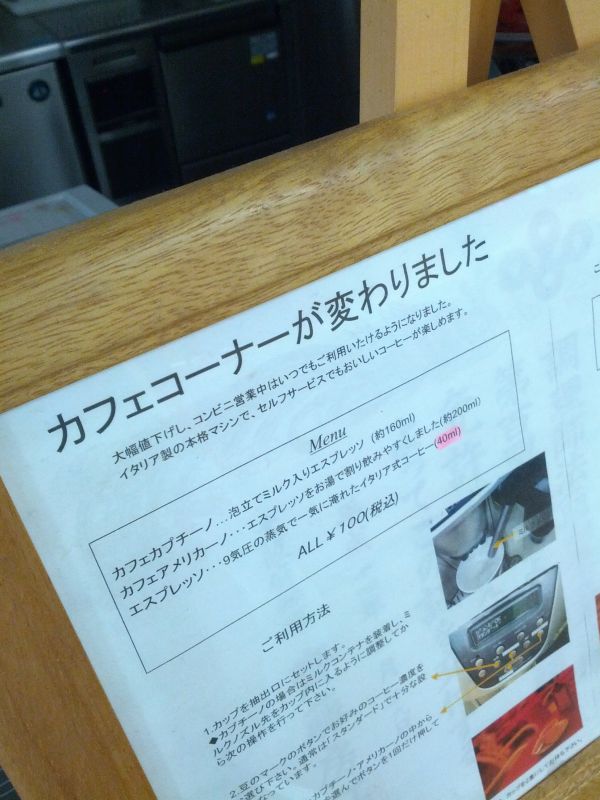 カフェコーナーが変わりました
大幅値下げし、コンビニ営業中はいつでもご利用いただけるようになりました。
イタリア製の本格マシンで、セルフサービスでもおいしいコーヒーが楽しめます。
Menu
カフェカプチーノ...泡立てミルク入りエスプレッソ (約160ml)
カフェアメリカーノ・・・エスプレッソをお湯で割り飲みやすくしました(約200ml)
エスプレッソ・・・9気圧の蒸気で一気に淹れたイタリア式コーヒー(40ml)
ALL ¥100(税込)
ご利用方法
1.カップを抽出口にセットします。
◆カプチーノの場合はミルクコンテナを装着し、ミ
ルクノズル先をカップ内に入るように調整してか
ら次の操作を行って下さい。
2.豆のマークのボタンでお好みのコーヒー濃度を
選び下さい。通常は「スタンダード」で十分な設
なっています。
カプチーノ・アメリカーノの中から
選んでボタンを1回だけ押して